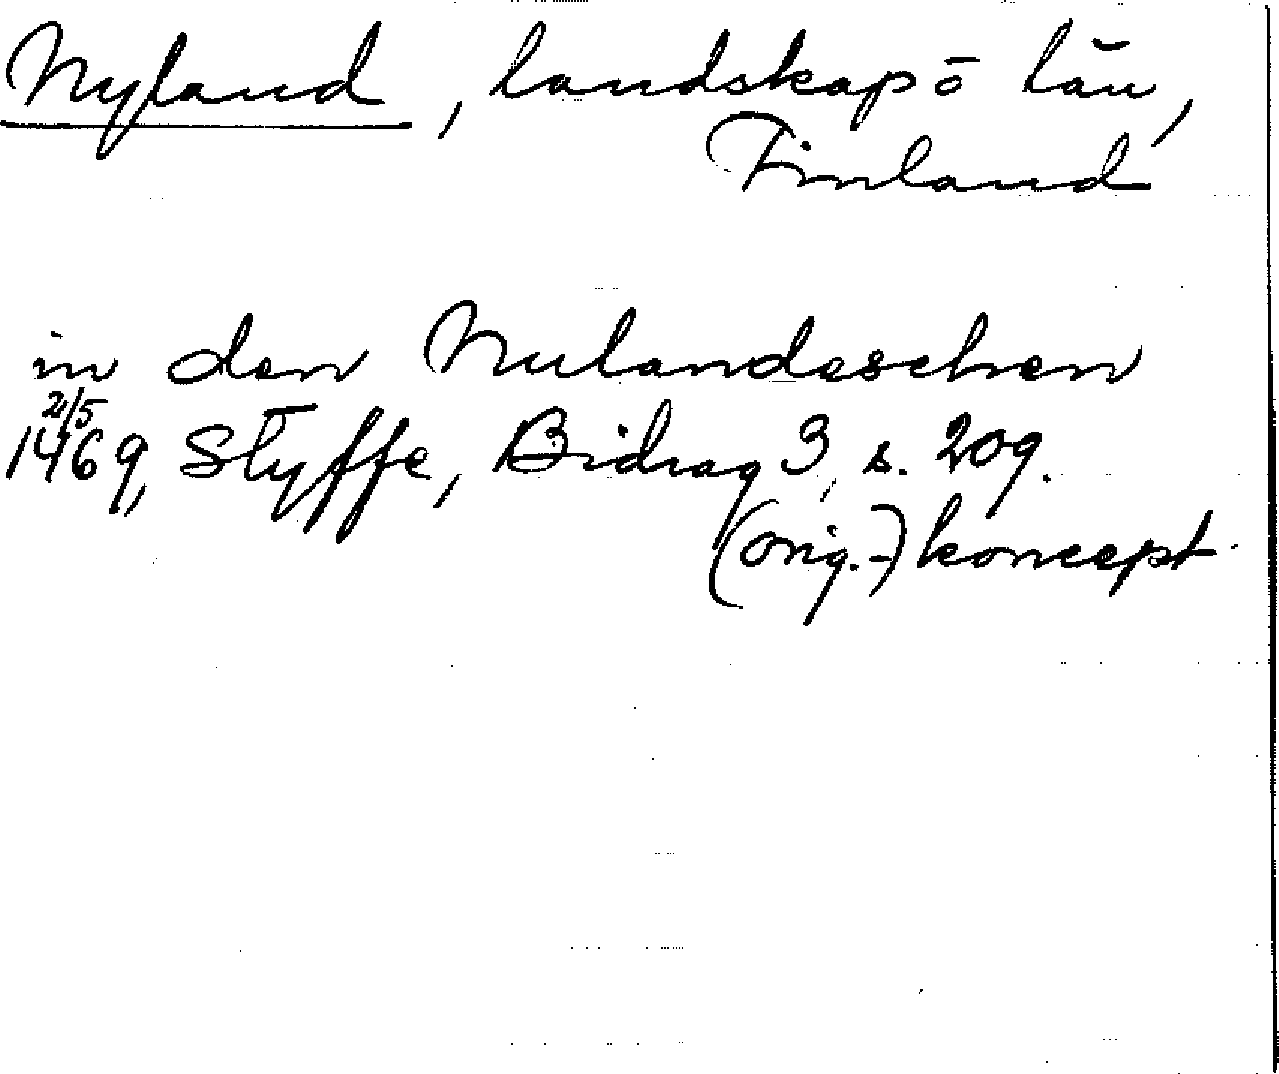 Nyland, landskap ō län,
Finland
in den Nulandeschen
2/5
1469, Styffe, Bidrag 3, s. 209.
(orig.-) koncept.